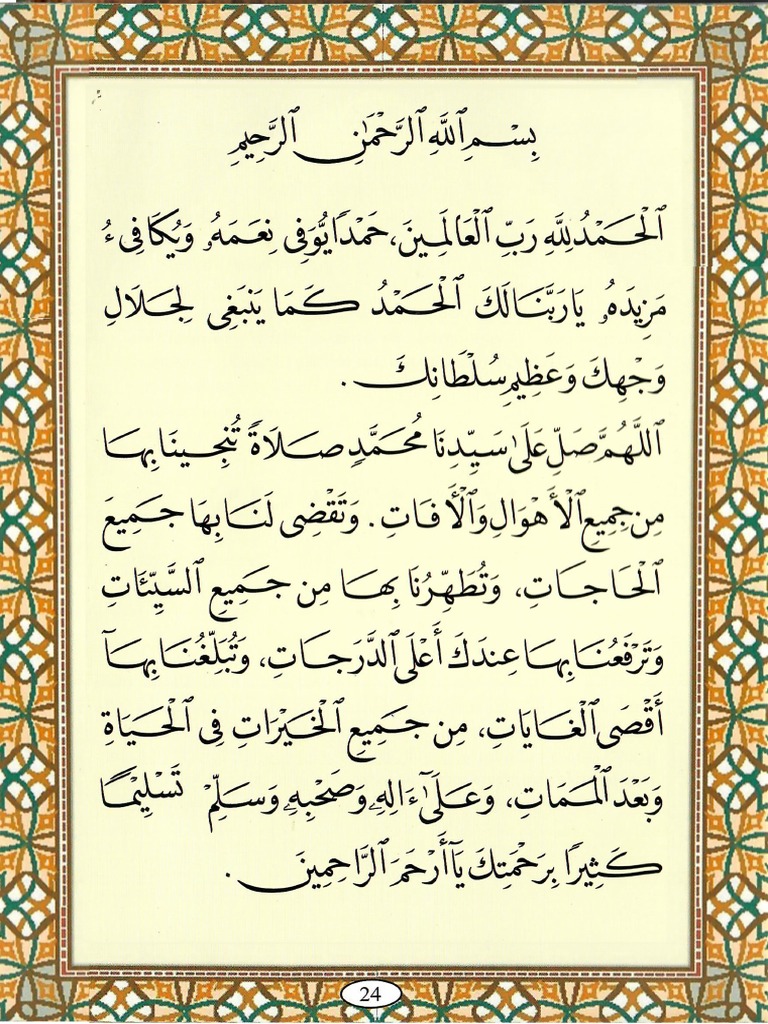 بِسْمِ ٱللَّهِ ٱلرَّحْمَٰنِ ٱلرَّحِيمِ
ٱلْحَمْدُ لِلَّهِ رَبِّ ٱلْعَالَمِينَ، حَمْدًا يُوَفِى نِعَمَهُۥ وَيُكَافِىءُ
مَزِيدَهُۥ يَارَبَّنَا لَكَ ٱلْحَمْدُ كَمَا يَنۢبَغِى لِجَلَالِ
وَجْهِكَ وَعَظِيمِ سُلْطَانِكَ .
اللَّهُمَّ صَلِّ عَلَىٰ سَيِّدِنَا مُحَمَّدٍ صَلَاةً تُنجِينَا بِهَا
مِن جَمِيعِ ٱلْأَهْوَالِ وَٱلْأَفَاتِ . وَتَقْضِى لَنَا بِهَا جَمِيعَ
ٱلْحَاجَاتِ، وَتُطَهِّرُنَا بِهَا مِن جَمِيعِ ٱلسَّيِّئَاتِ
وَتَرْفَعُنَا بِهَا عِندَكَ أَعْلَى ٱلدَّرَجَاتِ، وَتُبَلِّغُنَا بِهَآ
أَقْصَى ٱلْغَايَاتِ، مِن جَمِيعِ ٱلْخَيْرَاتِ فِى ٱلْحَيَاةِ
وَبَعْدَ ٱلْمَمَاتِ، وَعَلَىٰٓ ءَالِهِۦ وَصَحْبِهِۦ وَسَلِّمْ تَسْلِيمًا
كَثِيرًا بِرَحْمَتِكَ يَآ أَرْحَمَ ٱلرَّاحِمِينَ .
24